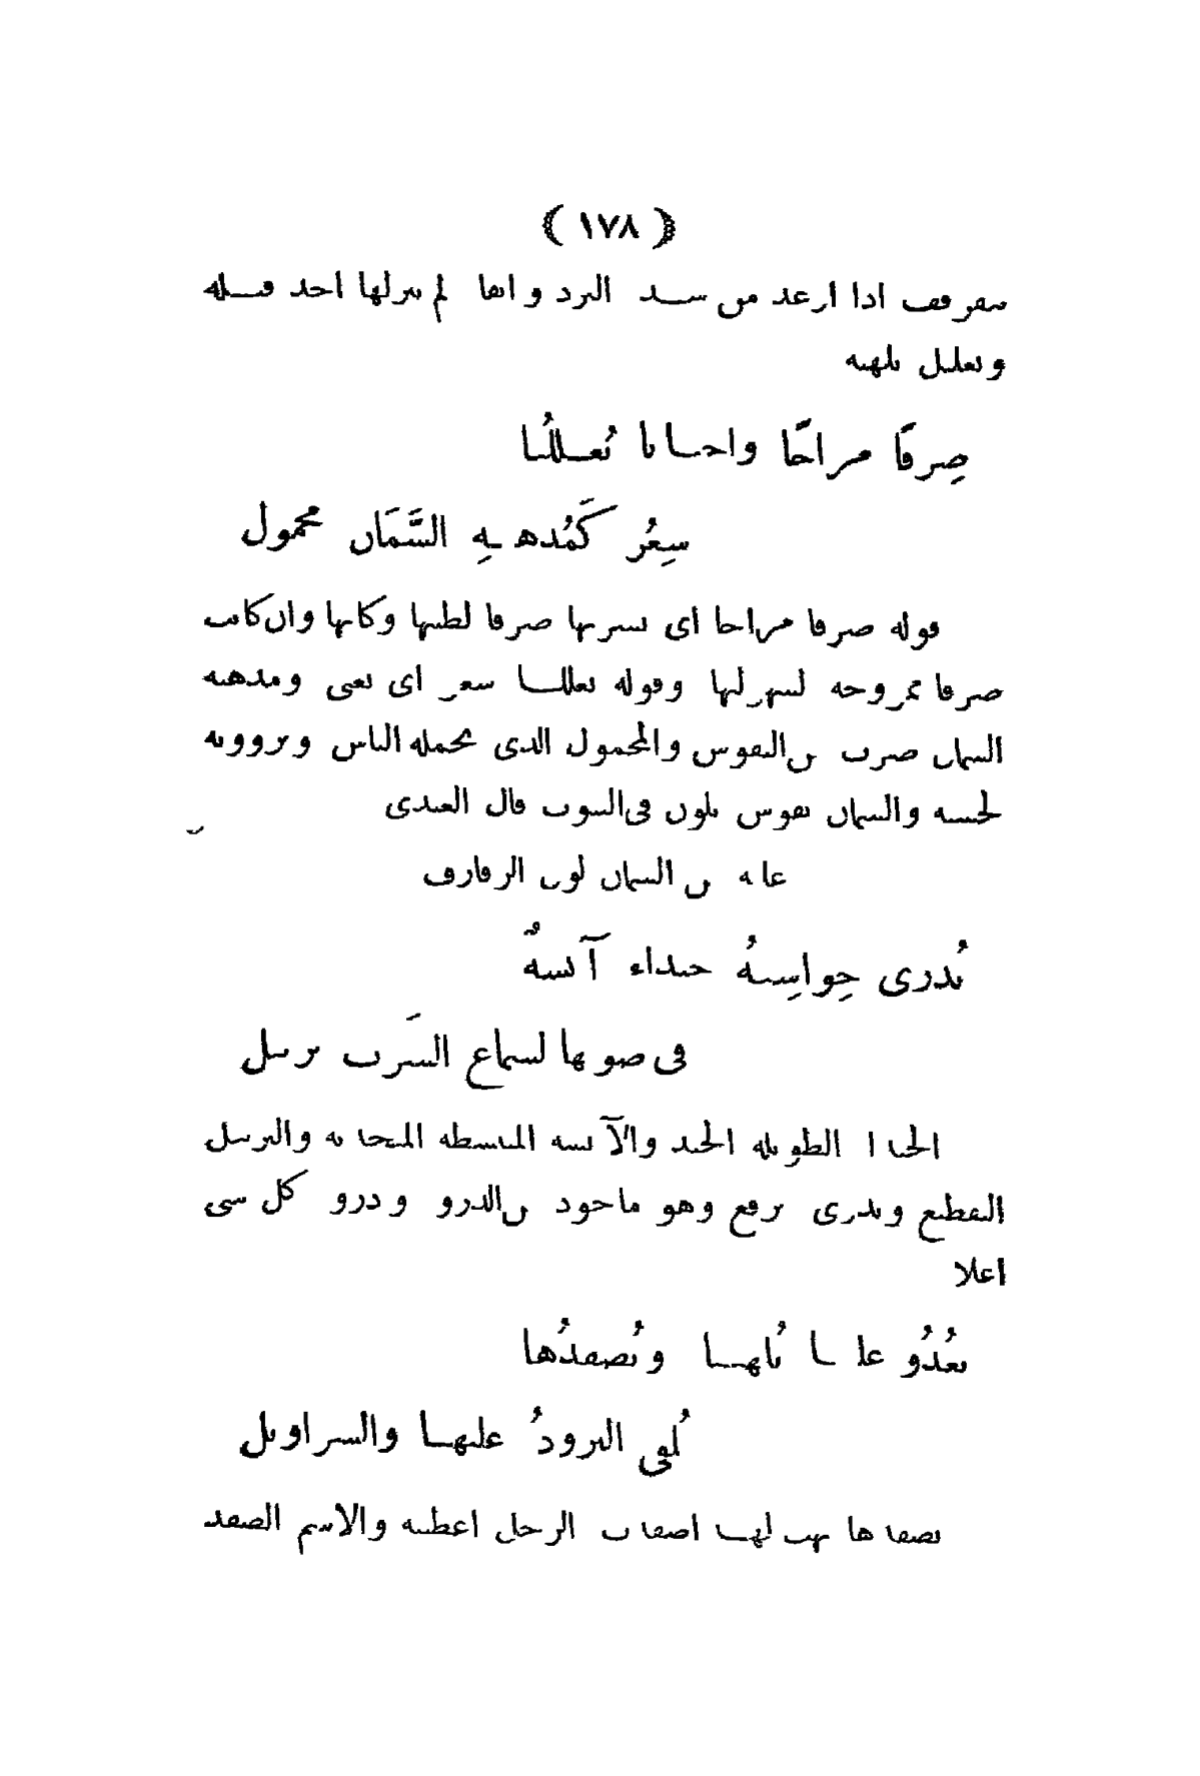 ( ١٧٨ )
يتقرقف اذا ارعد من شدة البرد و انها لم ينزلها احد قبله
وتعليل بلهنه
صِرفًا مزاجًا واحيانا تُعــللُنا
شِعرٌ كَمُذهبةِ السَّمَان محمول
قوله صرفا مزاجا اى نشربها صرفا لطيبها وكانها وان كانت
صرفا ممزوجة لسهولتها وقوله تعللنا شعر اى تغنى ومذهبة
السمان ضرب من النقوش والمحمول الذى يحمله الناس ويروونه
لحسنه والسمان نقوش تلون فى البيوت قال العبدى
عليه من السمان لون الزخارف
تُذرى حواشيهُ جيداء آنسةٌ
فى صوتها لسماع الشَرب ترتيل
الجيداء الطويلة الجيد والآنسة المنبسطة المتحدثة والترتيل
التقطيع وتذرى ترفع وهو ماخوذ من الذرو وذرو كل شى
اعلا
تغدُو علينا تُلهينــا ونُصفدُها
تُلقى البرودُ عليهــا والسراويل
نصفدها نهب لهــا اصفدت الرجل اعطيته والاسم الصفد